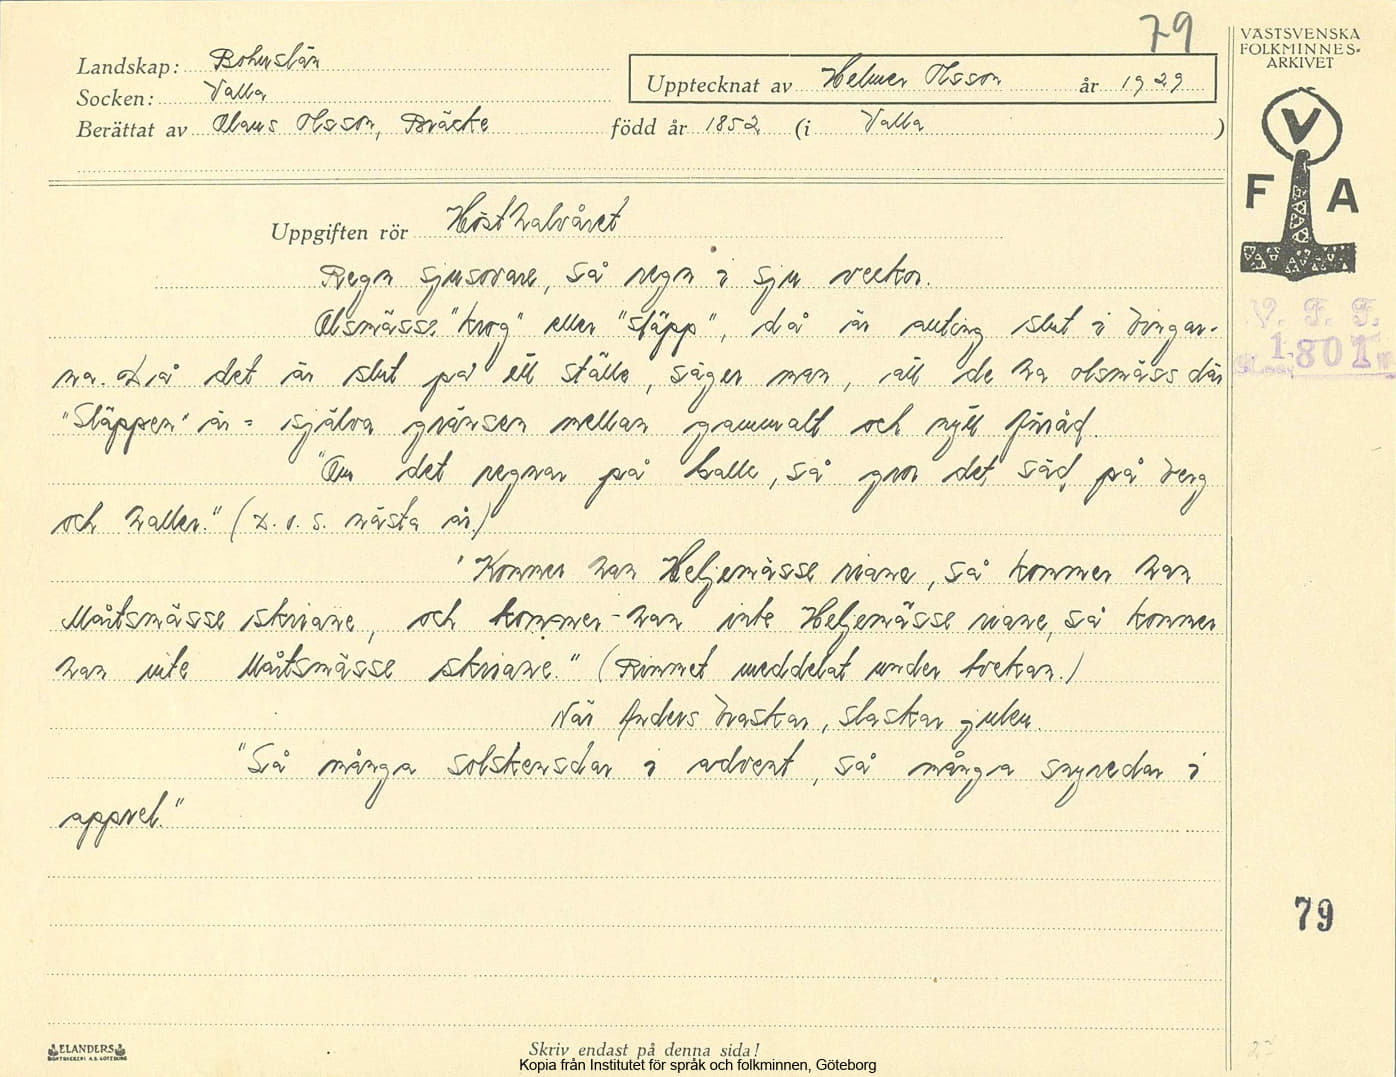 79
VÄSTSVENSKA
FOLKMINNES-
ARKIVET
Landskap: Bohuslän
Upptecknat av Helmer Olsson år 1929
Socken: Valla
Berättat av Olaus Olsson, Bräcke född år 1852 (i Valla )
V
F A
Uppgiften rör Höst halvåret
Regn sjusovare, så regn i sju veckor.
Olsmässe "krog" eller "släpp", då är allting slut i bingar-
na. Då det är slut på ett ställe, säger man, att de ha olsmäss där
"Släppen" är = själva gränsen mellan gammalt och nytt förråd.
"Om det regnar på balle, så gror det säd på berg
och haller." (D. v. s. nästa år.)
"Kommer han Heljemässe riane, så kommer han
Mårtsmässe skriane, och kommer han inte Heljemässe riane, så kommer
han inte Mårtsmässe skriane." (Rimmet meddelat under tvekan.)
När Anders braskar, slaskar julen.
"Så många solskensdar i advent, så många snyredar i
apprel."
V. F. F.
1801
79
ELANDERS
BOKTRYCKERI A.B. GÖTEBORG
Skriv endast på denna sida!
Kopia från Institutet för språk och folkminnen, Göteborg